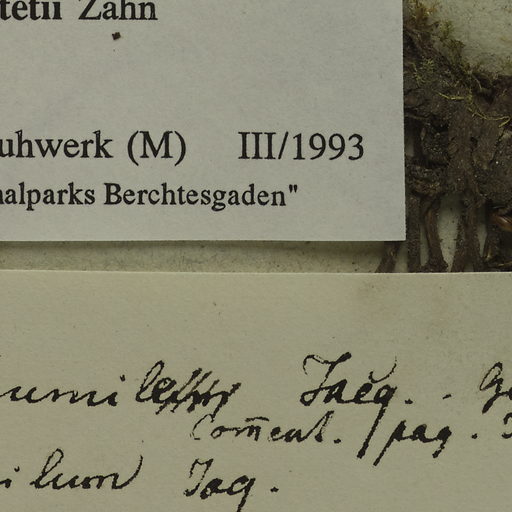 tetii Zahn
uhwerk (M) III/1993
nalparks Berchtesgaden"
umile Jacq. . G
Coment. / pag.
ilum Jaq.